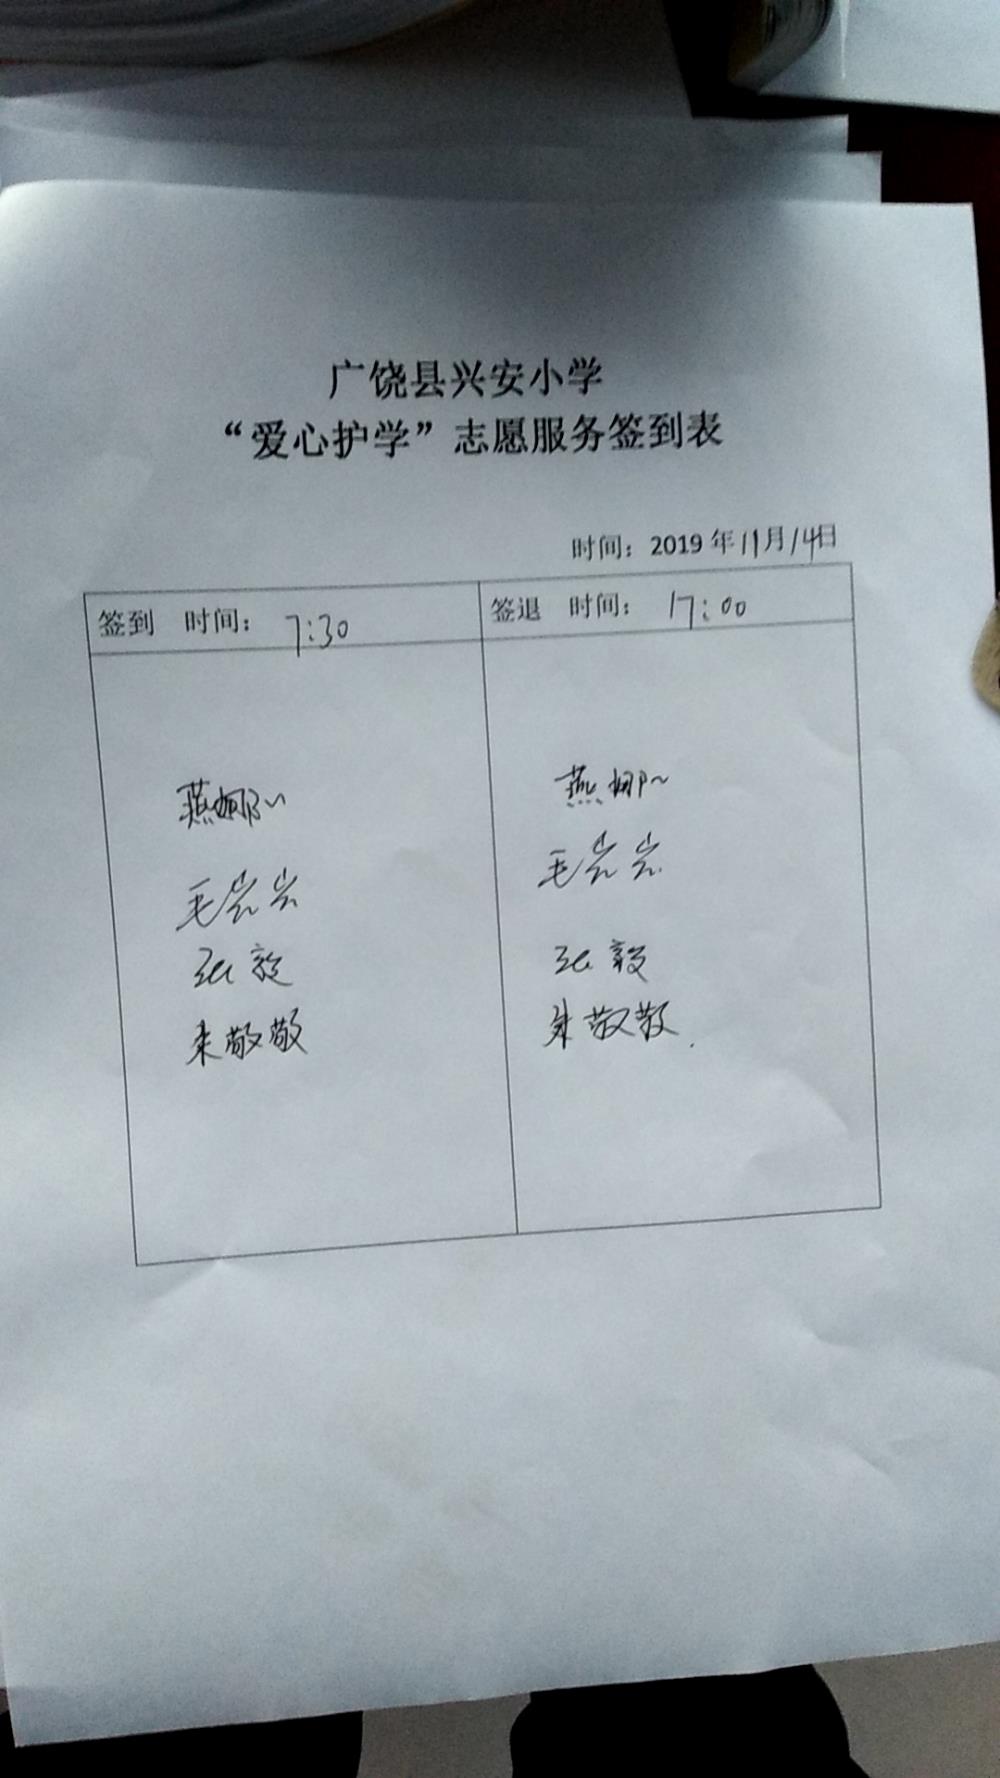 广饶县兴安小学
“爱心护学”志愿服务签到表
时间：2019年11月14日
签到 时间： 7:30 签退 时间： 17:00
燕娜娜 燕娜娜
毛岩岩 毛岩岩
张毅 张毅
朱敬敬 朱敬敬